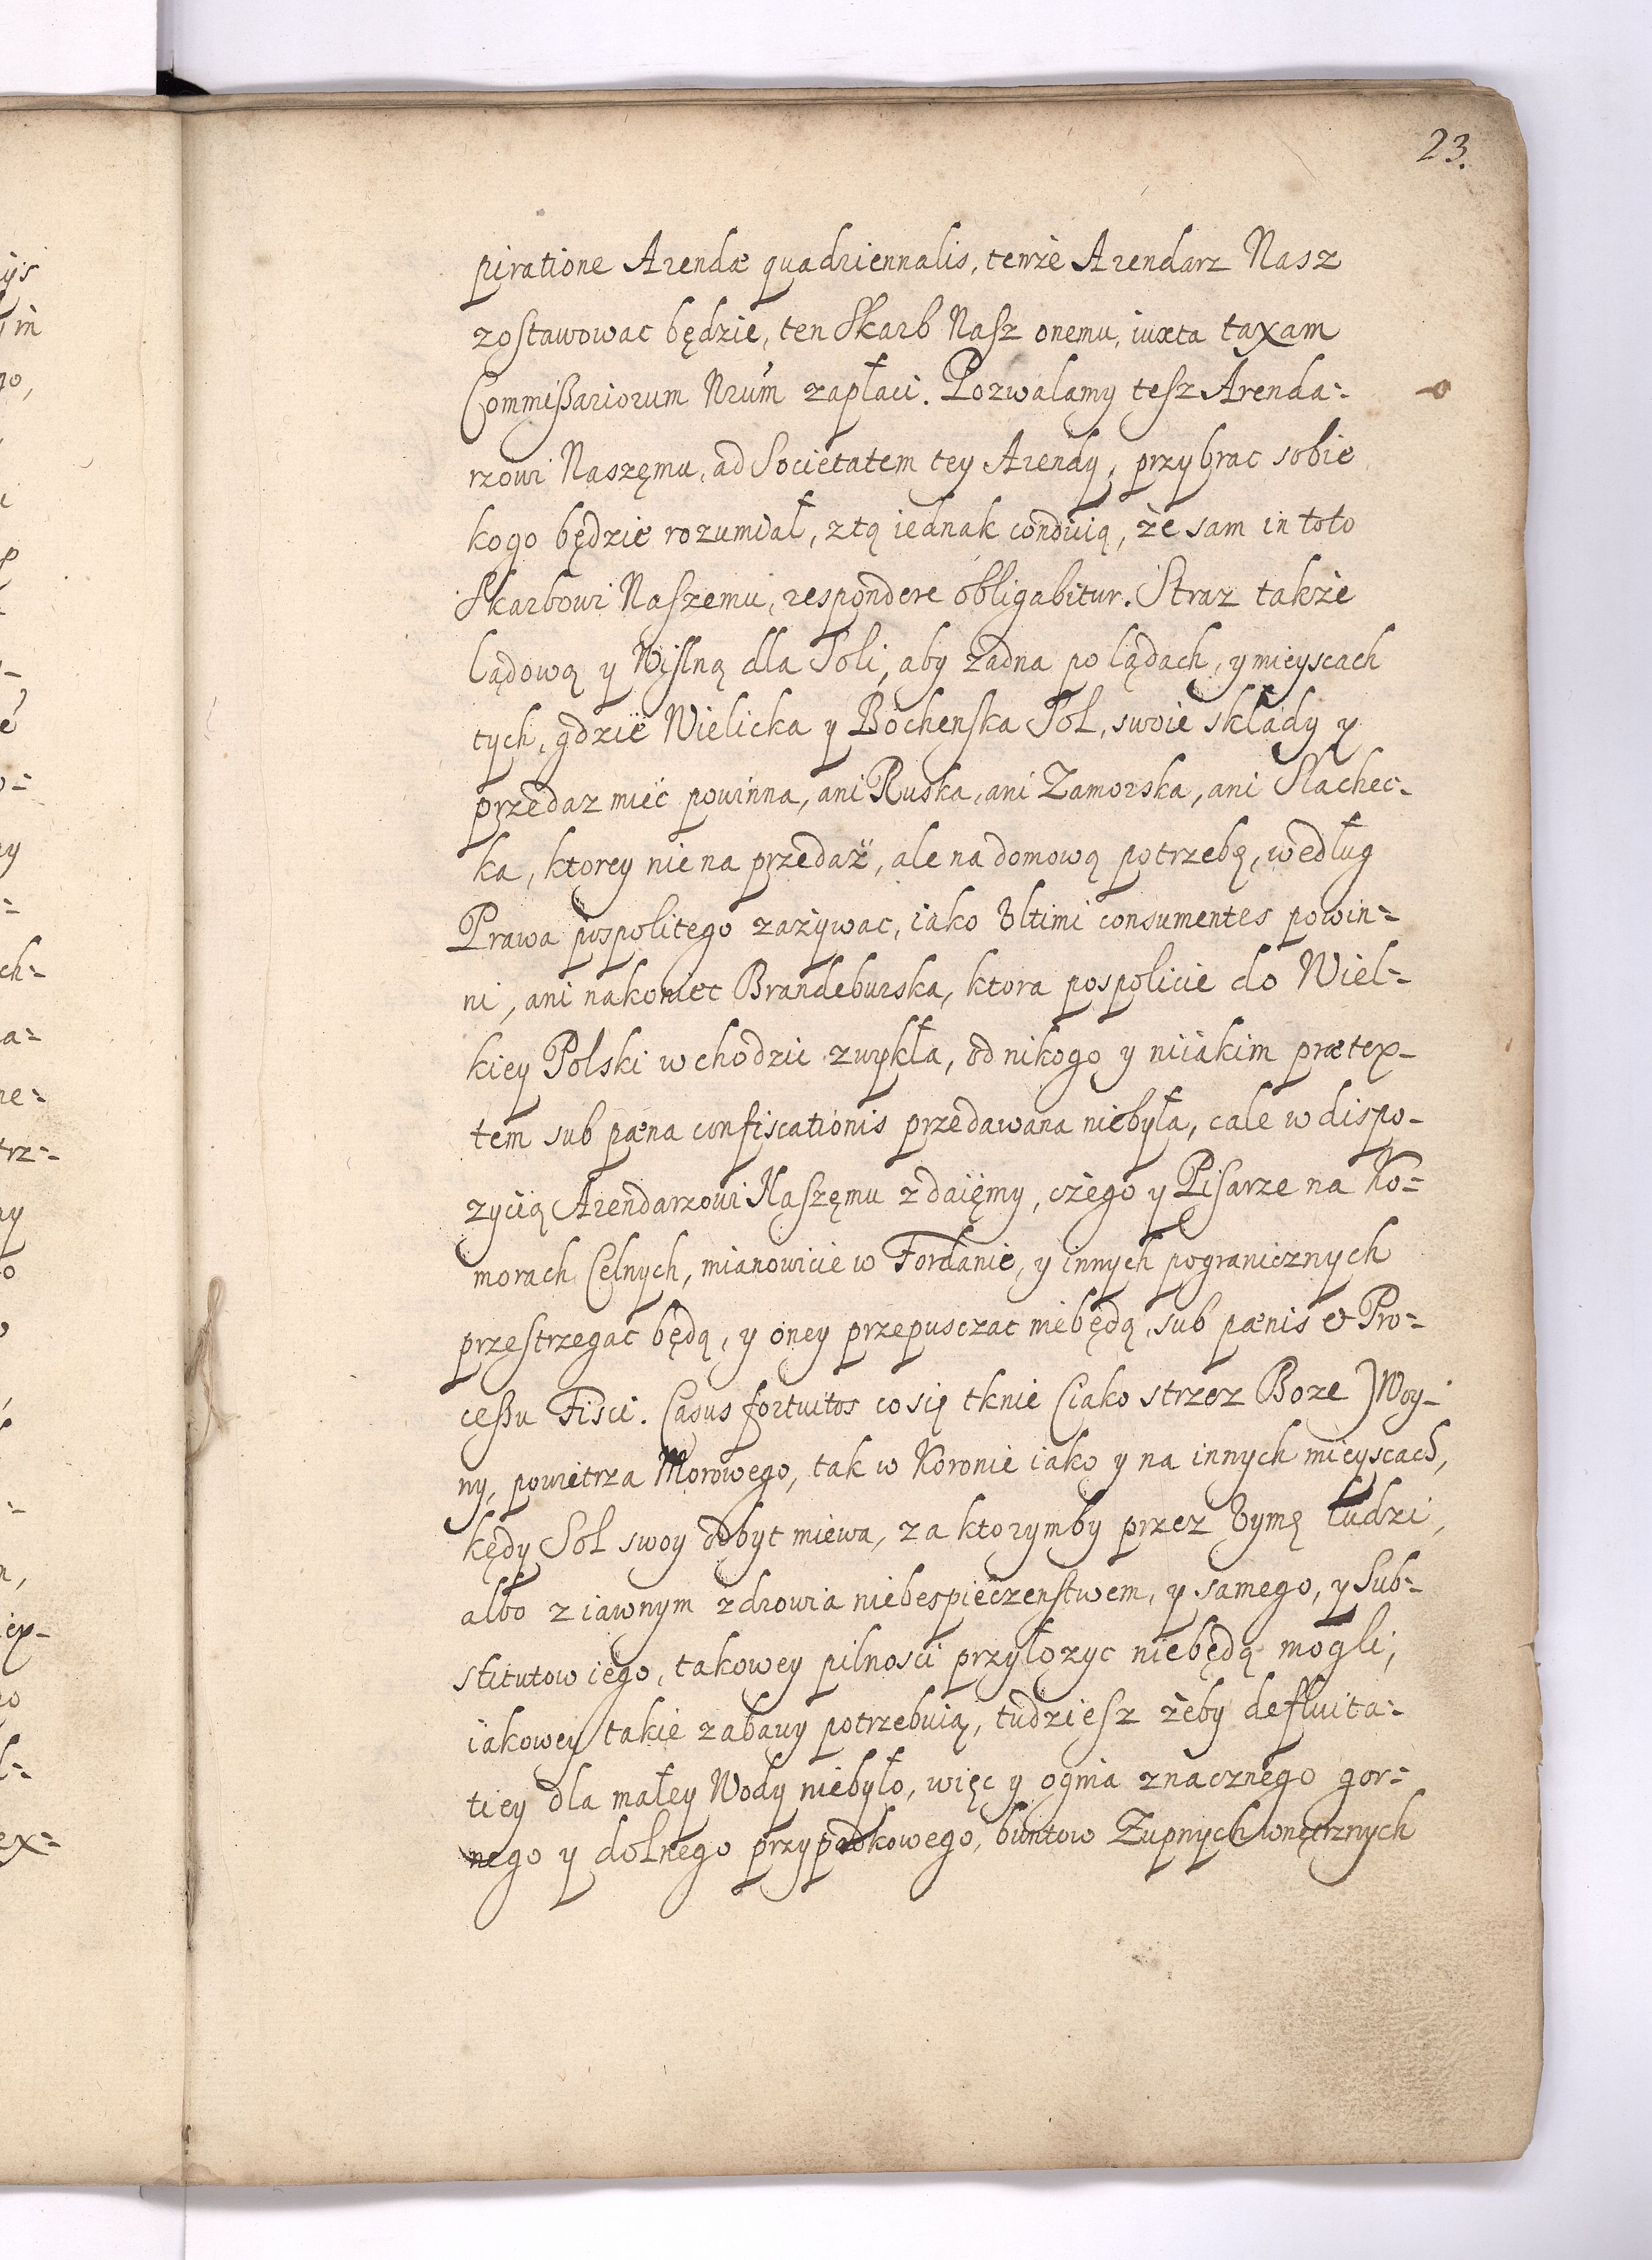 23.
piratione Arendæ quadriennalis, tenże Arendarz Nasz
zostawowac będzie, ten Skarb Nasz onemu, iuxta taxam
Commißariorum Nrum zapłaci. Pozwalamy tesz Arenda=
rzowi Naszęmu, ad Societatem tey Arendy, przybrac sobie
kogo będzie rozumiał, z tą iednak condicią, że sam in toto
Skarbowi Naszemu, respondere obligabitur. Straz także
lądową y Wislną dla Soli, aby żadna po lądach, y mieyscach
tych, gdzie Wielicka y Bochenska Sol, swoie składy y
przedaz miec powinna, ani Ruska, ani Zamorska, ani Slachec-
ka, ktorey nie na przedaż, ale na domową potrzebę, według
Prawa pospolitego zazywac, iako Vltimi consumentes powin=
ni, ani nakoniec Brandeburska, ktora pospolicie do Wiel=
kiey Polski wchodzic zwykła, od nikogo y niiakim prætex-
tem sub pæna confiscationis przedawana niebyła, cale w dispo-
zycią Arendarzowi Naszęmu zdaięmy, czego y Pisarze na Ko=
morach Celnych, mianowicie w Fordanie, y innych pogranicznych
przestrzegac będą, y oney przepusczac niebędą, sub pænis et Pro=
ceßu Fisci. Casus fortuitos co się tknie (iako strzez Boze) Woy-
ny, powietrza Morowego, tak w Koronie iako y na innych mieyscach,
kędy Sol swoy odbyt miewa, za ktorymby przez Vymę ludzi,
albo z iawnym zdrowia niebespieczenstwem, y samego, y Sub=
stitutow iego, takowey pilnosci przyłozyc niebędą mogli,
iakowey takie zabawy potrzebuią, tudziesz żeby defluita=
tiey dla małey Wody niebyło, więc y ognia znacznego gor=
nego y dolnego przypadkowego, buntow Zupnych wnętrznych